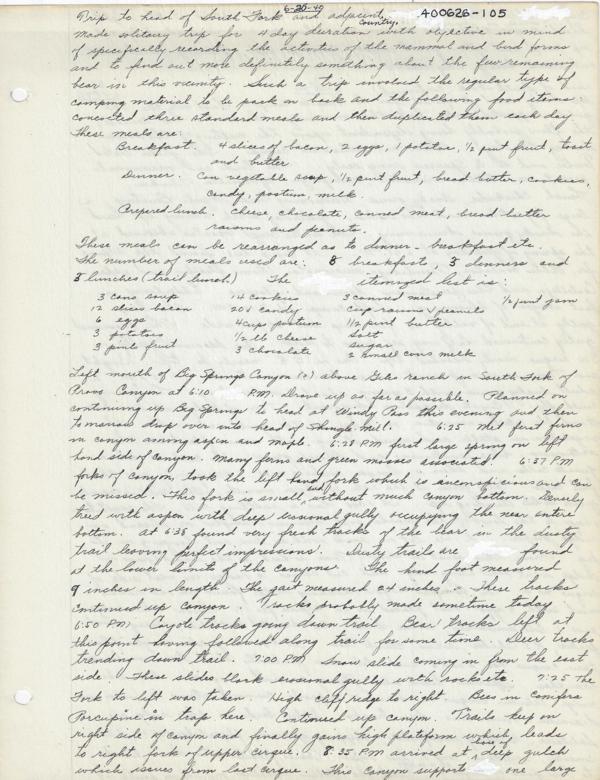 6-26-40
400626-105
Trip to head of South Fork and adjacent country.
Made solitary trip for 4 day duration with objective in mind
of specifically recording the activities of the mammal and bird forms
and to find out more definitely something about the few remaining
bear in this vicinity. Such a trip involved the regular type of
camping material to be pack on back and the following food items.
concocted three standard meals and then duplicated them each day
These meals are:
Breakfast. 4 slices of bacon, 2 eggs, 1 potatoe, 1/2 pint fruit, toast
and butter
Dinner. Can vegetable soup, 1/2 pint fruit, bread butter, cookies,
candy, postum, milk.
Prepared lunch. Cheese, chocolate, canned meat, bread butter
raisins and peanuts.
These meals can be rearranged as to dinner - breakfast etc.
The number of meals used are: 8 breakfasts, 3 dinners and
3 lunches (trail lunch.) The itemized list is:
3 cans soup 14 cookies 3 canned meat 1/2 pint jam
12 slices bacon 20¢ candy cup raisins & peanuts
6 eggs 4 cups postum 1/2 pint butter
3 potatoes 1/2 lb cheese salt
3 pints fruit 3 chocolate sugar
2 small cans milk
Left mouth of Big Springs Canyon above ranch in South Fork of
Provo Canyon at 6:10 P.M. Drove up as far as possible. Planned on
continuing up Big Springs to head at Windy Pass this evening and then
tomorrow drop over into head of Shingle Mill. 6:25 Met first ferns
in canyon among aspen and maple. 6:28 PM first large spring on left
hand side of canyon. Many ferns and green mosses associated. 6:37 PM
forks of canyon, took the left hand fork which is inconspicious and can
be missed. This fork is small and without much canyon bottom. Densely
treed with aspen with deep erosional gully occupying the near entire
bottom. At 6:38 found very fresh tracks of the bear in the dusty
trail leaving perfect impressions. Dusty trails are found
at the lower limits of the canyons. The hind foot measured
9 inches in length. The gait measured 24 inches. These tracks
continued up canyon. Tracks probably made sometime today.
6:50 PM Coyote tracks going down trail. Bear tracks left at
this point having followed along trail for some time. Deer tracks
trending down trail. 7:00 PM Snow slide coming in from the east
side. These slides block erosional gully with rocks etc. 7:25 The
Fork to left was taken. High cliff ridge to right. Bees in conifera
Porcupine in trap here. Continued up canyon. Trails keep on
right side of canyon and finally gains high plateform which leads
to right fork of upper cirque. 8:35 PM arrived at deep gulch
which issues from last cirque. This canyon supports one large